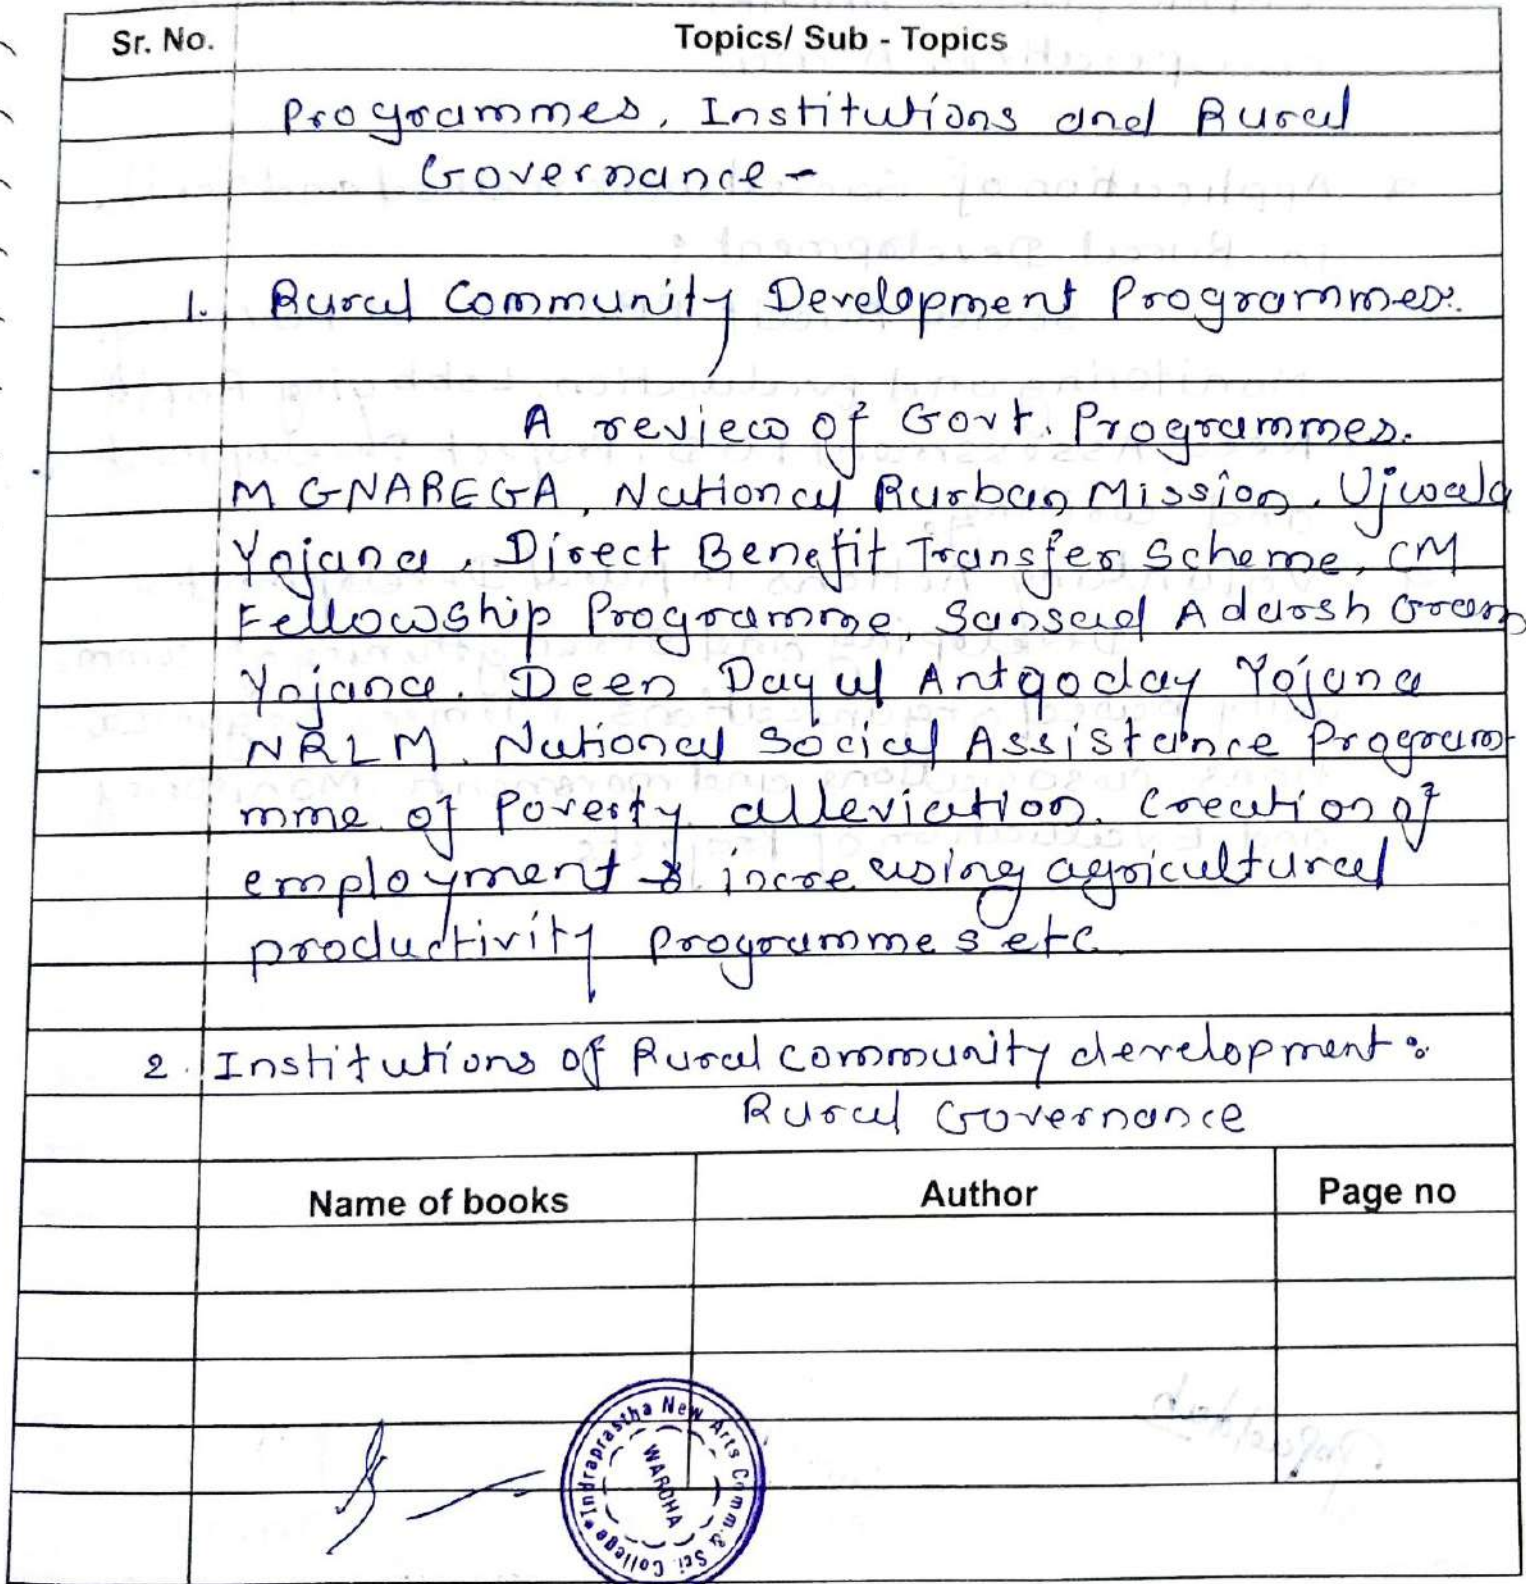 Sr. No. Topics/ Sub - Topics
Programmes, Institutions and Rural
Governance -
1. Rural Community Development Programmes:
A review of Govt. Programmes.
MGNAREGA, National Rurban Mission, Ujwala
Yojana, Direct Benefit Transfer Scheme, CM
Fellowship Programme, Sansad Adarsh Gram
Yojana. Deen Dayal Antyoday Yojana
NRLM. National Social Assistance Program-
mme of Poverty alleviation. Creation of
employment & increasing agricultural
productivity programmes etc
2. Institutions of Rural community development :
Rural Governance
Name of books Author Page no
Indraprastha New Arts Comm. & Sci. College
WARDHA